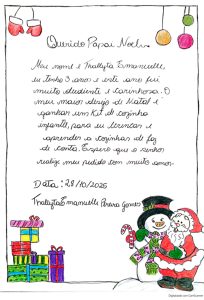 Querido Papai Noel:
Meu nome é Thallyta Emanuelle
eu tenho 3 anos e este ano fui
muito obediente e carinhosa. O
meu maior desejo de Natal é
ganhar um Kit de cozinha
infantil, para eu brincar e
aprender a cozinhar de faz
de conta. Espero que o senhor
realize meu pedido com muito amor.
Data: 28/10/2025
Thallyta Emanuelle Pereira Gomes
Digitalizado com CamScanner